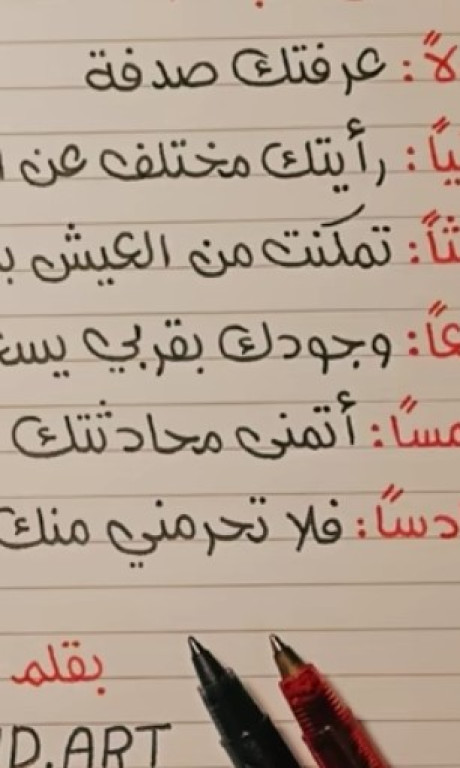 لاً: عرفتك صدفة
ياً: رأيتك مختلف عن
ثاً: تمكنت من العيش
عاً: وجودك بقربي
مساً: أتمنى محادثتك
دساً: فلا تحرمني منك
بقلم
D.ART